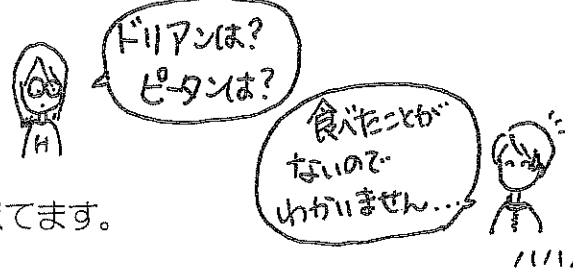 ドリアンは?
ピータンは?
食べたことが
ないので
わかりません...
H
てます。